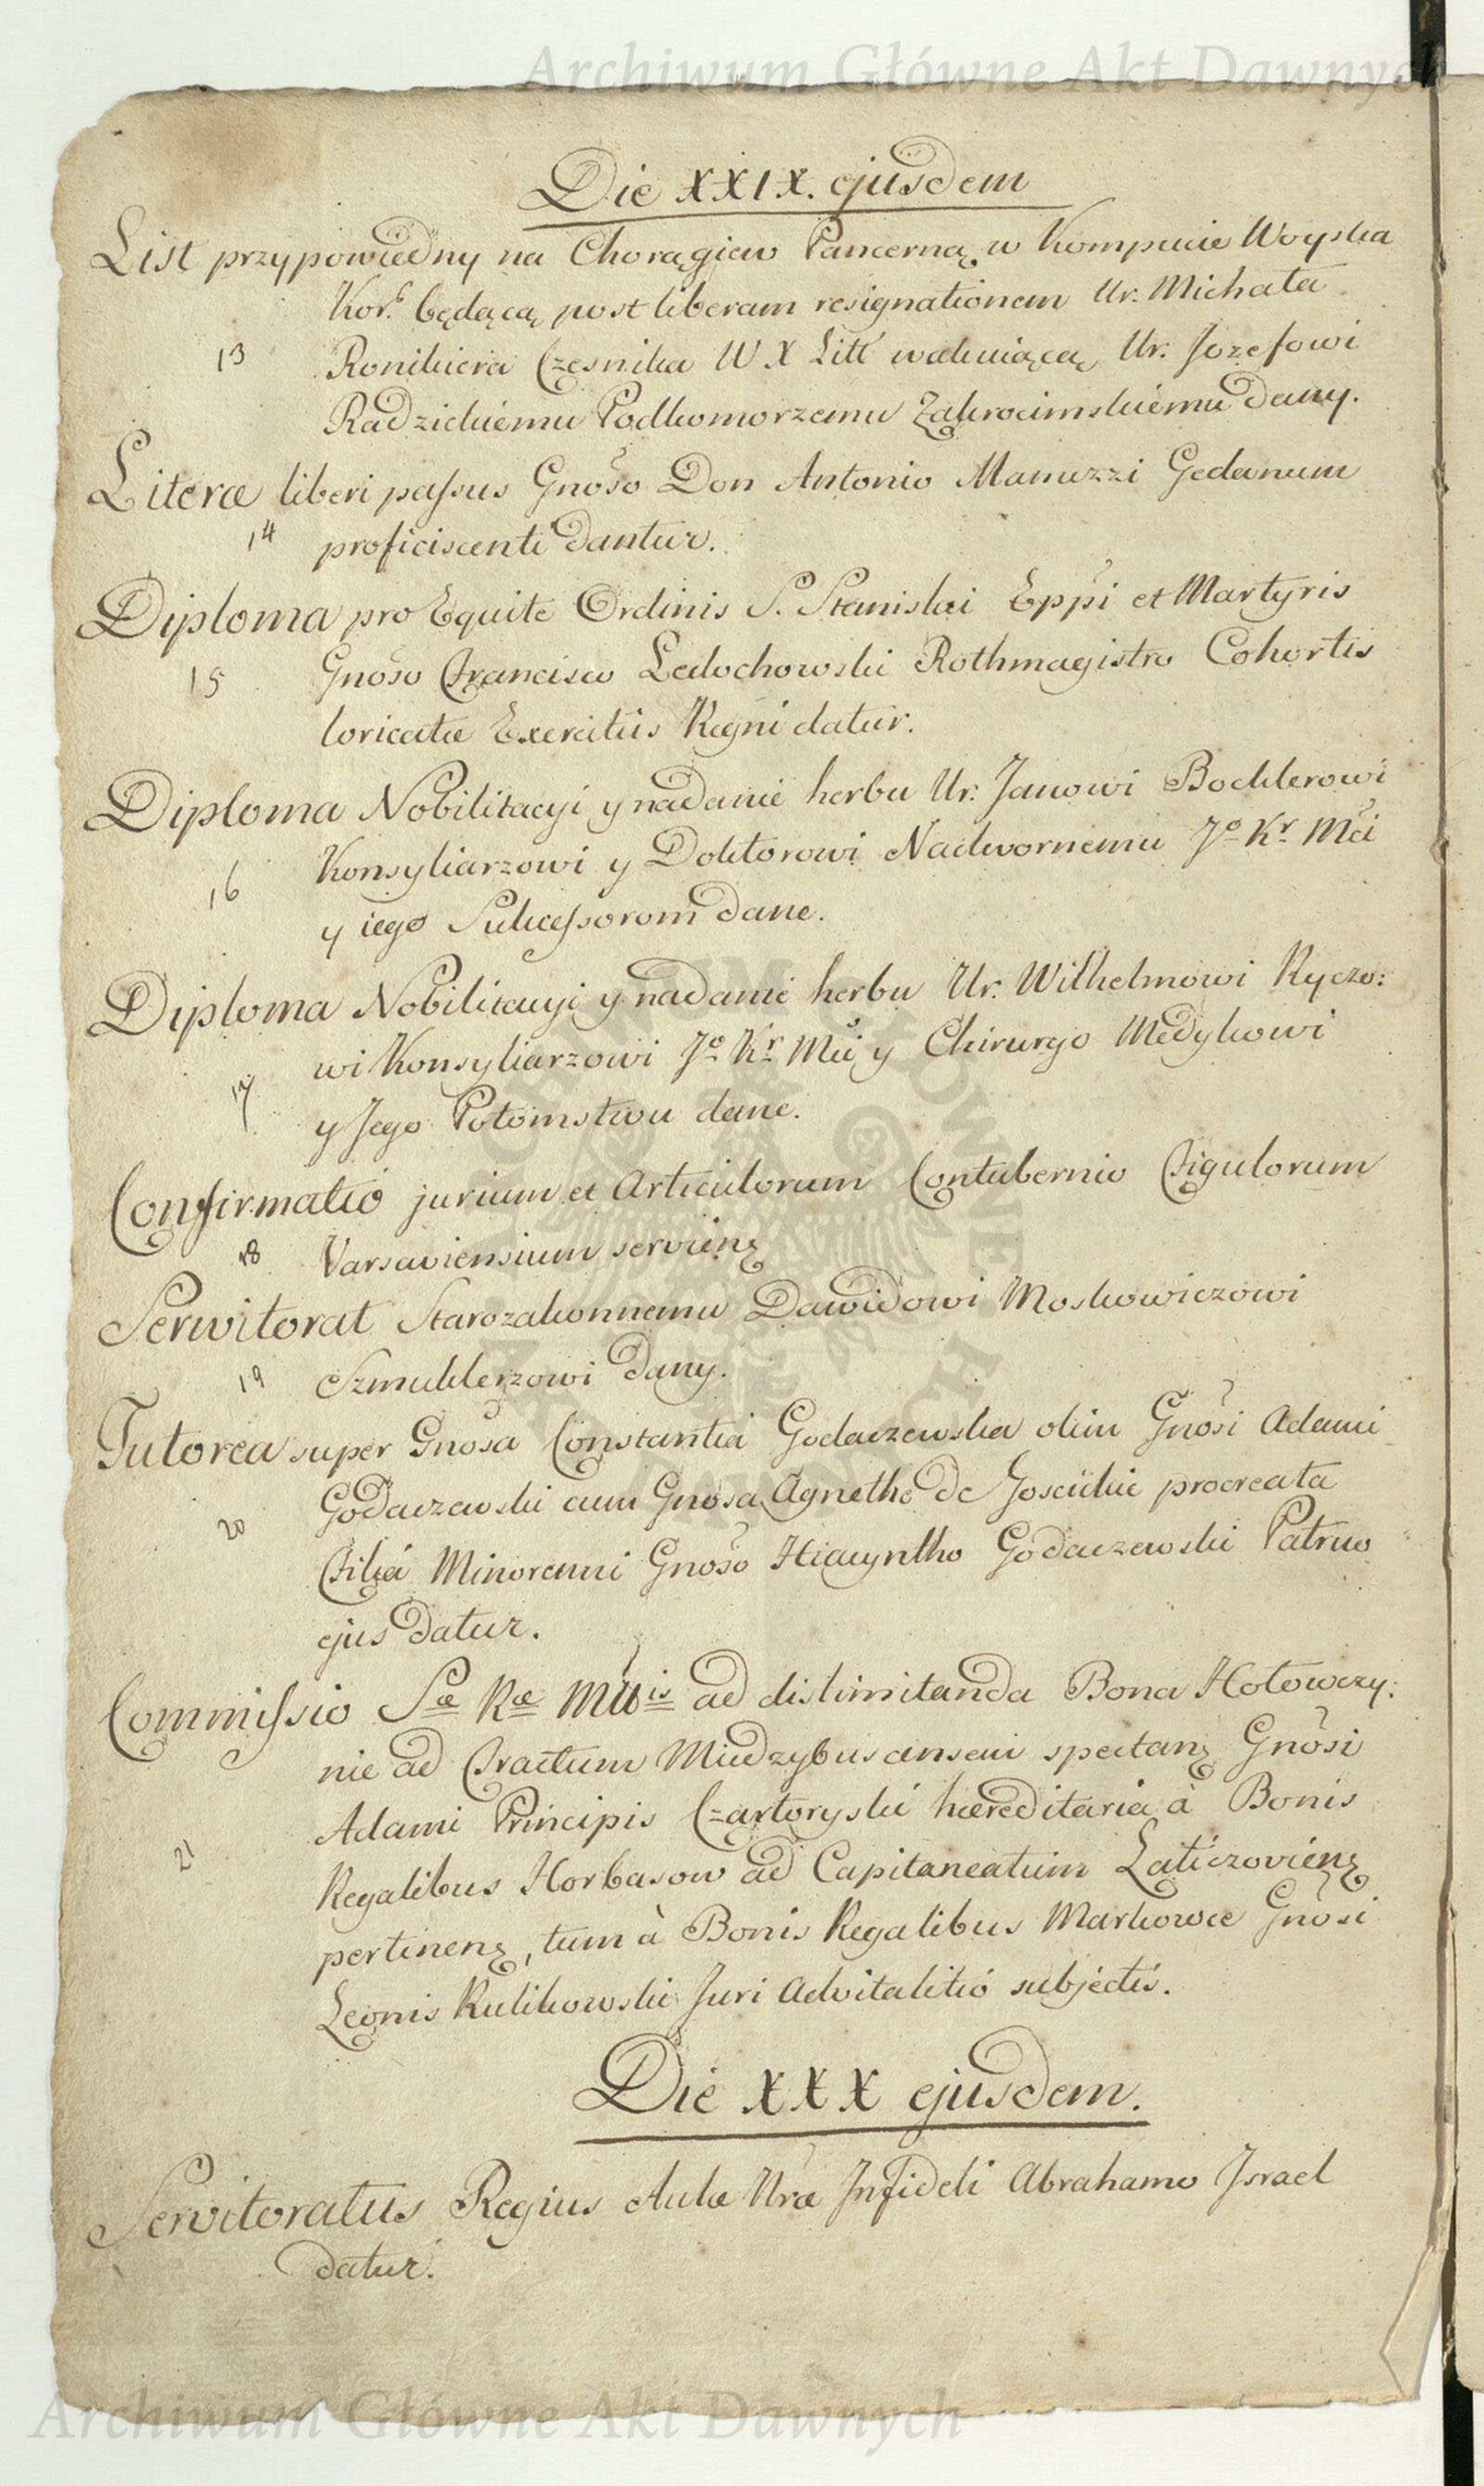 Archiwum Główne Akt Dawnych
Die XXIX. ejusdem
List przypowiedny na Chorągiew Pancerną w Kompucie Woyska
Kor. będącą post liberam resignationem Ur. Michała
13 Ronikiera Czesnika W X Litt wakuiącą, Ur. Jozefowi
Radzickiemu Podkomorzemu Zakrocimskiemu dany.
Literæ liberi passus Gnoso Don Antonio Manuzzi Gedanum
14 proficiscenti dantur.
Diploma pro Equite Ordinis S. Stanislai Eppi et Martyris
15 Gnoso Francisco Ledochowski Rothmagistro Cohortis
loricatæ Exercitus Regni datur.
Diploma Nobilitacyi y nadanie herbu Ur: Janowi Boeklerowi
16 Konsyliarzowi y Doktorowi Nadwornemu Jo Kr Mci
y iego Sukcessorom dane.
Diploma Nobilitacyi y nadanie herbu Ur. Wilhelmowi Ryczo:
17 wi Konsyliarzowi Jo Kr Mci y Chirurgo Medykowi
y Jego Potomstwu dane.
Confirmatio jurium et Articulorum Contubernio Figulorum
18 Varsaviensium servienę
Serwitorat Starozakonnemu Dawidowi Moskowiczowi
19 Szmuklerzowi dany.
Tutorea super Gnosa Constantia Godaczewska olim Gnosi Adami
20 Godaczewski cum Gnosa Agnethe de Joscickie procreata
Filiá Minorenni Gnoso Hiacyntho Godaczewski Patruo
ejus datur.
Commissio Sæ Ræ Mttis ad dislimitanda Bona Hołowczy:
nie ad Tractum Miedzybuscensem spectanę Gnosi
Adami Principis Czartoryski hæreditaria à Bonis
21 Regalibus Horbasow ad Capitaneatum Laticzovienę
pertinenę, tum à Bonis Regalibus Markowce Gnosi
Leonis Kulikowski Juri Advitalitió subjectis.
Die XXX ejusdem.
Servitoratus Regius Aulæ Nræ Infideli Abrahamo Israel
datur.
Archiwum Główne Akt Dawnych